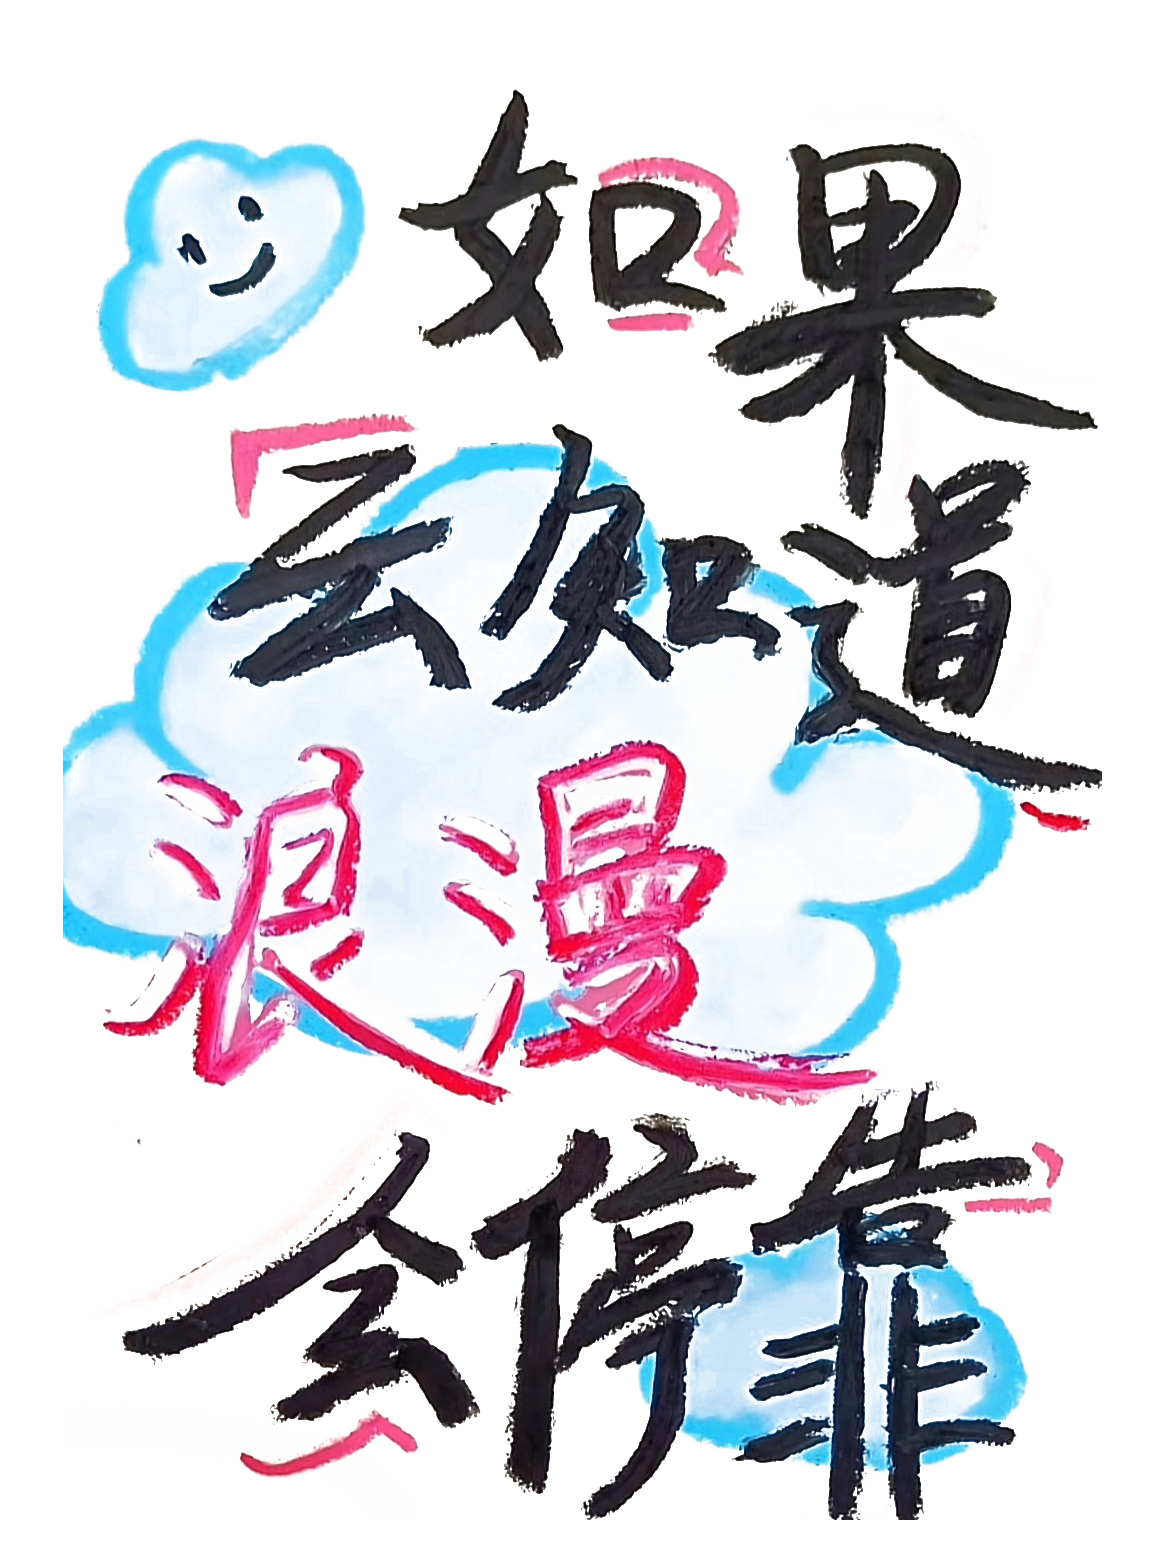 如果
云知道
浪漫
会停靠